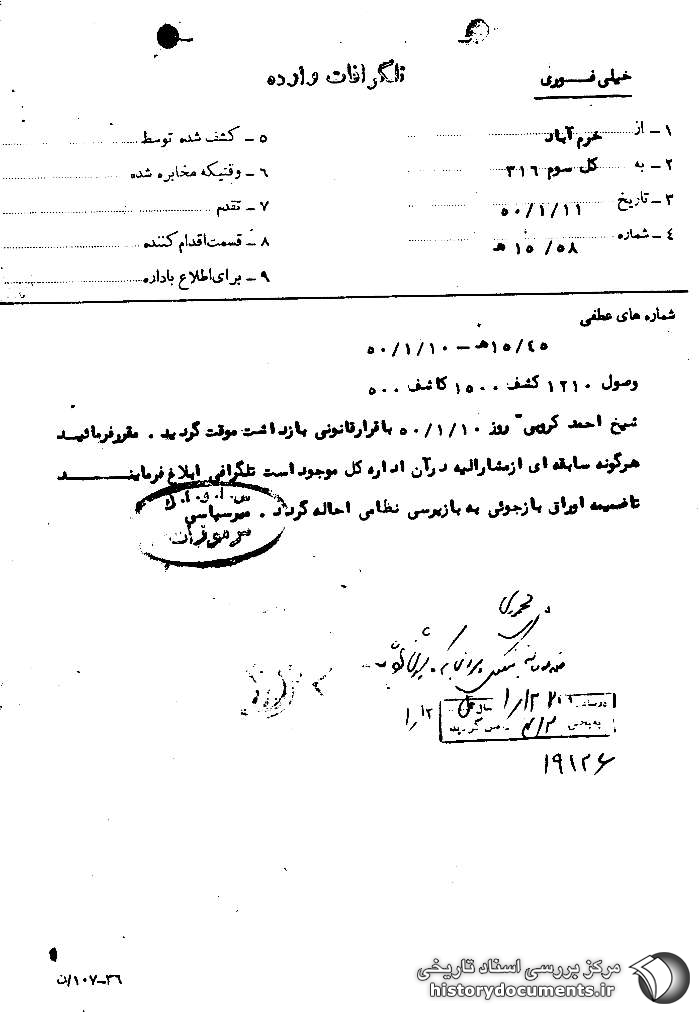 تلگرافات وارده
خیلی فــوری
۱ـ از خرم آباد
۲ـ به کل سوم ۳۱۶
۳ـ تاریخ ۵۰/۱/۱۱
٤ـ شماره ۱۵/۵۸ هـ
۵ ـ کشف شده توسط
۶ ـ وقتیکه مخابره شده
۷ ـ تقدم
۸ ـ قسمت اقدام کننده
۹ ـ برای اطلاع باداره
شماره های عطفی
۱۵/٤۵هـ – ۵۰/۱/۱۰
وصول ۱۲۱۰ کشف ۱۵۰۰ کاشف ۵۰۰
شیخ احمد کروبی روز ۵۰/۱/۱۰ با قرار قانونی بازداشت موقت گردید . مقرر فرمائیــد
هرگونه سابقه ای از مشارالیه در آن اداره کل موجود است تلگرافی ابلاغ فرماینــــد
تا ضمیمه اوراق بازجوئی به بازپرسی نظامی احاله گردد .
س . ا . و . ا . ک
میرسپاسی
۱۹۱۲۶
۳۶ـ۱۰۷/ن
مرکز بررسی اسناد تاریخی
historydocuments.ir